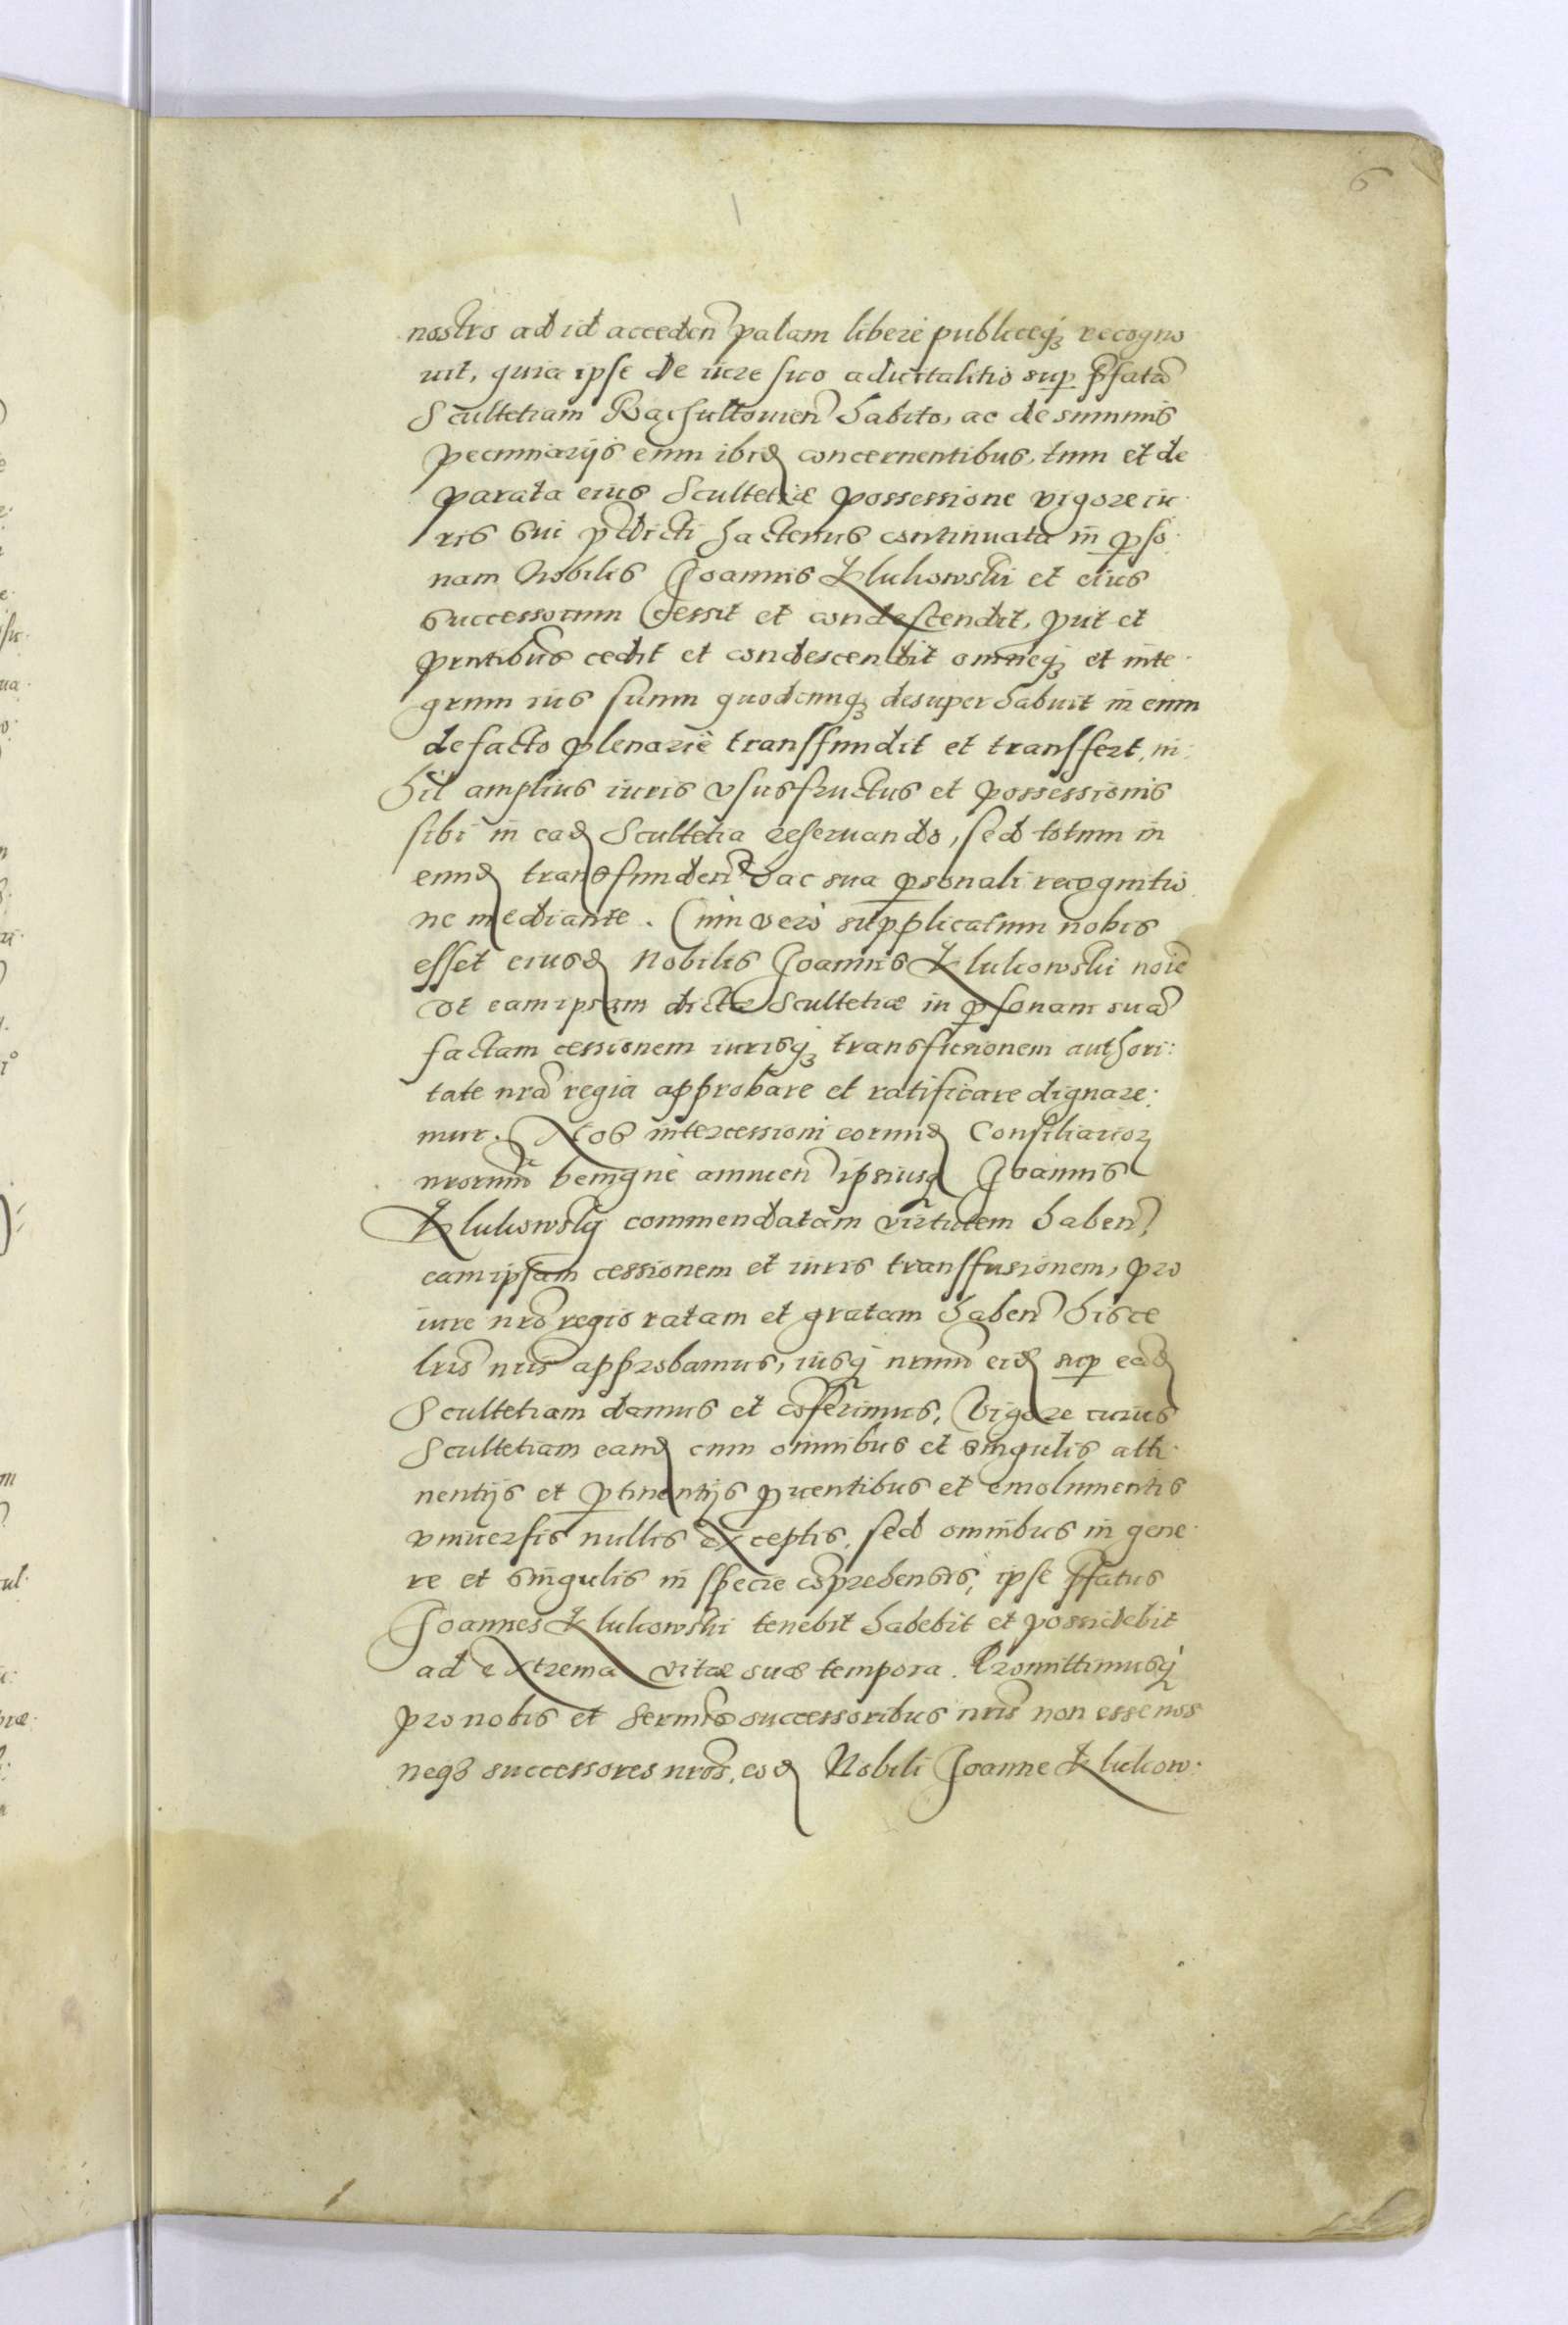 6
nostro ad id acceden palam libere publiceqꝫ recogno
uit, quia ipse de iure suo aduitalitio sup pfatã
Scultetiam habito, ac de summis
pecuniarijs eum ibid concernentibus, tum et de
parata eius Scultetiæ possessione vigore iu
ris sui pdicti hactenus continuata in pso
nam Nobilis Joannis Klukowski et eius
successorum cessit et condescendit, put et
pntibus cedit et condescendit omneqꝫ et inte
grum ius suum quodcunqꝫ desuper habuit in eum
de facto plenarie transffundit et transffert, ni
hil amplius iuris vsusfructus et possessionis
sibi in ead Scultetia reseruando, sed totum in
eund transfunden hac sua psonali recognitio
ne mediante. Cum vero supplicatum nobis
esset eiusd Nobilis Joannis Klukowski noie
vt eam ipsam dictæ Scultetiæ in psonam suã
factam cessionem iurisqꝫ transfusionem authori:
tate nrã regia approbare et ratificare dignare:
mur. Nos intercessioni eorund Consiliarioꝝ
nrorum benigne annuen ipsiusqꝫ Joannis
Klukowskij commendatam virtutem haben,
eam ipsam cessionem et iuris transffusionem, pro
iure nro regio ratam et gratam haben hisce
lris nris approbamus, iusqꝫ nrum eid sup ead
Scultetiam damus et coferimus, Vigore cuius
Scultetiam eand cum omnibus et singulis atti
nentijs et ptinentijs puentibus et emolumentis
vniuersis nullis exceptis, sed omnibus in gene
re et singulis in specie coprehensis, ipse pfatus
Joannes Klukowski tenebit habebit et possidebit
ad extrema vitæ suæ tempora. Promittimusqꝫ
pro nobis et Sermis successoribus nris non esse nos
neqꝫ successores nros, eod Nobili Joanne Klukow: